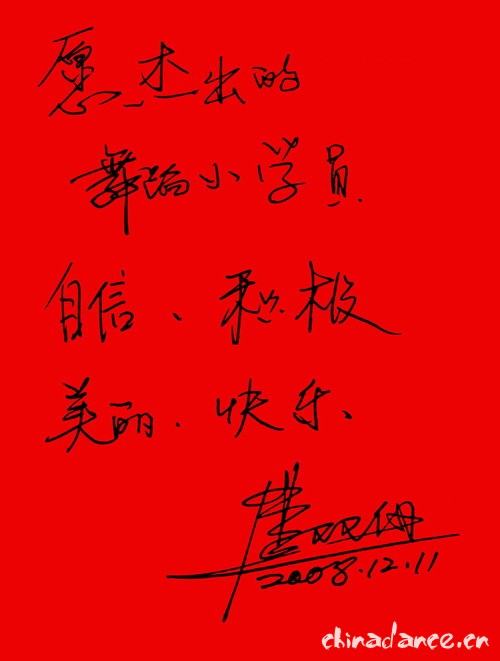 愿杰出的
舞蹈小学员
自信、积极
美丽、快乐、
2008.12.11
chinadance.cn